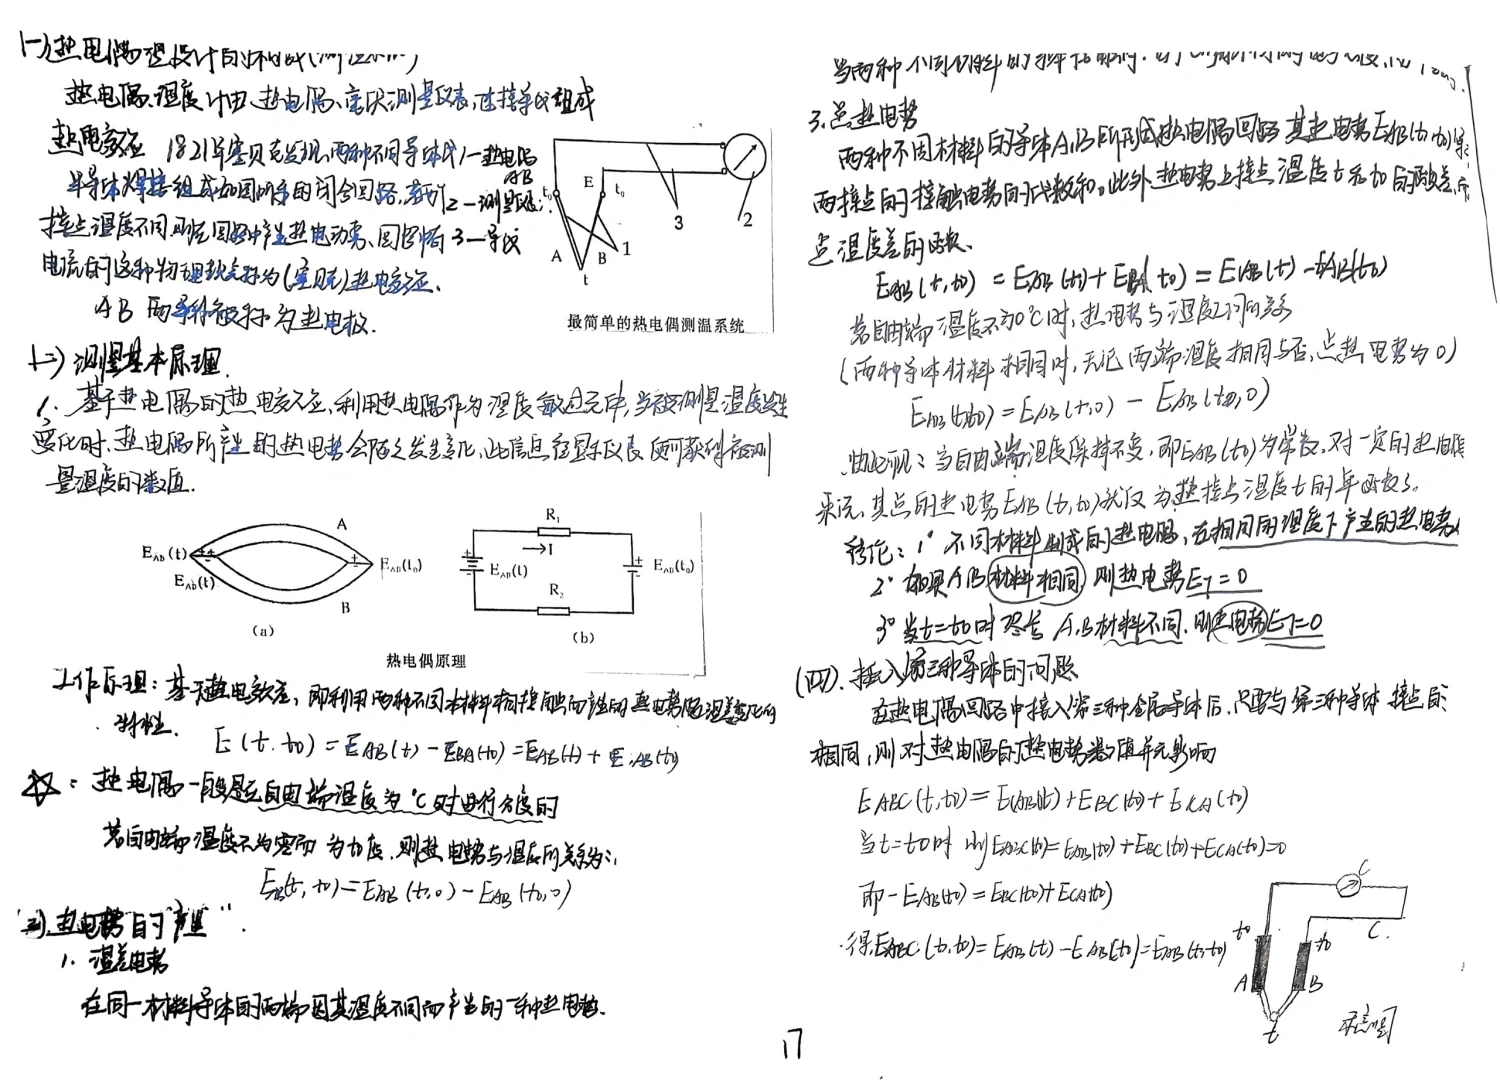 热电偶温度计由、热电偶、毫伏测量仪表,连接导线组成
热电效应 1821年塞贝克发现,两种不同导体或
半导体焊接组成如图所示的闭合回路,若
接点温度不同,则在回路中产生热电动势、回路中有
电流的这种物理现象称为(塞贝克)热电效应.
AB 两导体被称为热电极.
1—热电偶
AB
2—测量仪
3—导线
E
t₀
t₀
A
B
t
1
2
3
最简单的热电偶测温系统
(二) 测量基本原理.
1. 基于热电偶的热电效应,利用热电偶作为温度敏感元件,当被测量温度发生
变化时,热电偶所产生的热电势会随之发生变化,此信息经显示仪表便可获得被测
量温度的数值.
A
B
E_AB(t)
E_AB(t)
E_AB(t₀)
(a)
R₁
→I
E_AB(t)
R₂
E_AB(t₀)
(b)
热电偶原理
工作原理:基于热电效应,即利用两种不同材料相接触而产生的热电势随温度变化的
特性.
E(t.t₀)=E_AB(t)-E_BA(t₀)=E_AB(t)+E_AB(t₀)
☆:热电偶一般是在自由端温度为°C时进行分度的
若自由端温度不为零而为t₀度.则热电势与温度的关系为:
E_AB(t,t₀)=E_AB(t,0)-E_AB(t₀,0)
三)热电势的"产生".
1. 温差电势
在同一材料导体的两端因其温度不同而产生的一种热电势.
3.总热电势
两种不同材料的导体A,B所形成热电偶回路其热电势E_AB(t,t₀)是
两接点的接触电势的代数和。此外,热电势与接点温度t和t₀的
是温度差的函数.
E_AB(t,t₀)=E_AB(t)+E_BA(t₀)=E_AB(t)-E_AB(t₀)
若自由端温度不为0℃时,热电势与温度之间的关系
(两种导体材料相同时,无论两端温度相同与否,总热电势为0)
E_AB(t,t₀)=E_AB(t,0)-E_AB(t₀,0)
由此可见:当自由端温度保持不变,即E_AB(t₀)为常数,对一定的热电偶
来说,其总的热电势E_AB(t,t₀)就仅为热接点温度t的单值函数.
结论:1° 不同材料制成的热电偶,在相同的温度下产生的热电势
2° 如果A,B材料相同,则热电势E_T=0
3° 当t=t₀时 尽管A,B材料不同.则热电势E_T=0
(四).插入第三种导体的问题
在热电偶回路中接入第三种金属导体后,只要与第三种导体接点的
相同,则对热电偶的热电势数值并无影响
E_ABC(t,t₀)=E_AB(t)+E_BC(t₀)+E_CA(t₀)
当t=t₀时 则E_ABC(t₀)=E_AB(t₀)+E_BC(t₀)+E_CA(t₀)=0
即-E_AB(t₀)=E_BC(t₀)+E_CA(t₀)
得:E_ABC(t,t₀)=E_AB(t)-E_AB(t₀)=E_AB(t,t₀)
C
C.
t₀
t₀
A
B
t
示意图
17